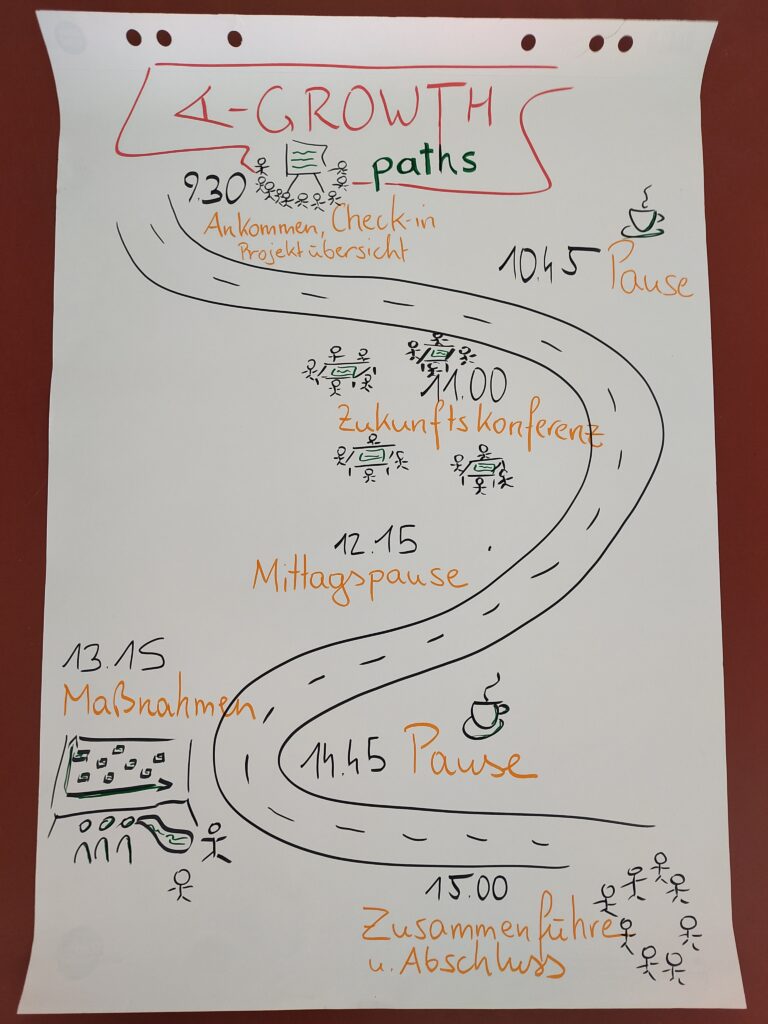 A-GROWTH
paths
9.30
Ankommen, Check-in
Projektübersicht
10.45 Pause
11.00
Zukunftskonferenz
12.15
Mittagspause
13.15
Maßnahmen
14.45 Pause
15.00
Zusammenführe
u. Abschluss